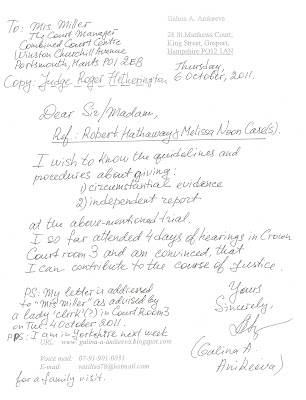 Galina A. Anikeeva
28 St.Mathews Court,
King Street, Gosport,
Hampshire PO12 1AN
To: Mrs. Miller
The Court Manager
Combined Court Centre
Winston Churchill Avenue
Portsmouth, Hants PO1 2EB
Thursday,
6 October, 2011.
Copy: Judge Roger Hetherington
Dear Sir/Madam,
Ref.: Robert Hathaway & Melissa Noon Case(s).
I wish to know the guidelines and
procedures about giving:
1) circumstantial evidence
2) independent report
at the above-mentioned trial.
I so far attended 4 days of hearings in Crown
Court room 3 and am convinced, that
I can contribute to the course of Justice.
PS: My letter is addressed
to "Mrs Miller" as advised by
a lady 'clerk'(?) in Court Room 3
on Tue, 4 October 2011.
PPS: I am in Yorkshire next week
for a family visit.
Yours
Sincerely,
(Galina A.
Anikeeva)
URL: www.galina-a-anikeeva.blogspot.com
Voice mail: 07-91-901-0091
email: vasilisa78@hotmail.com